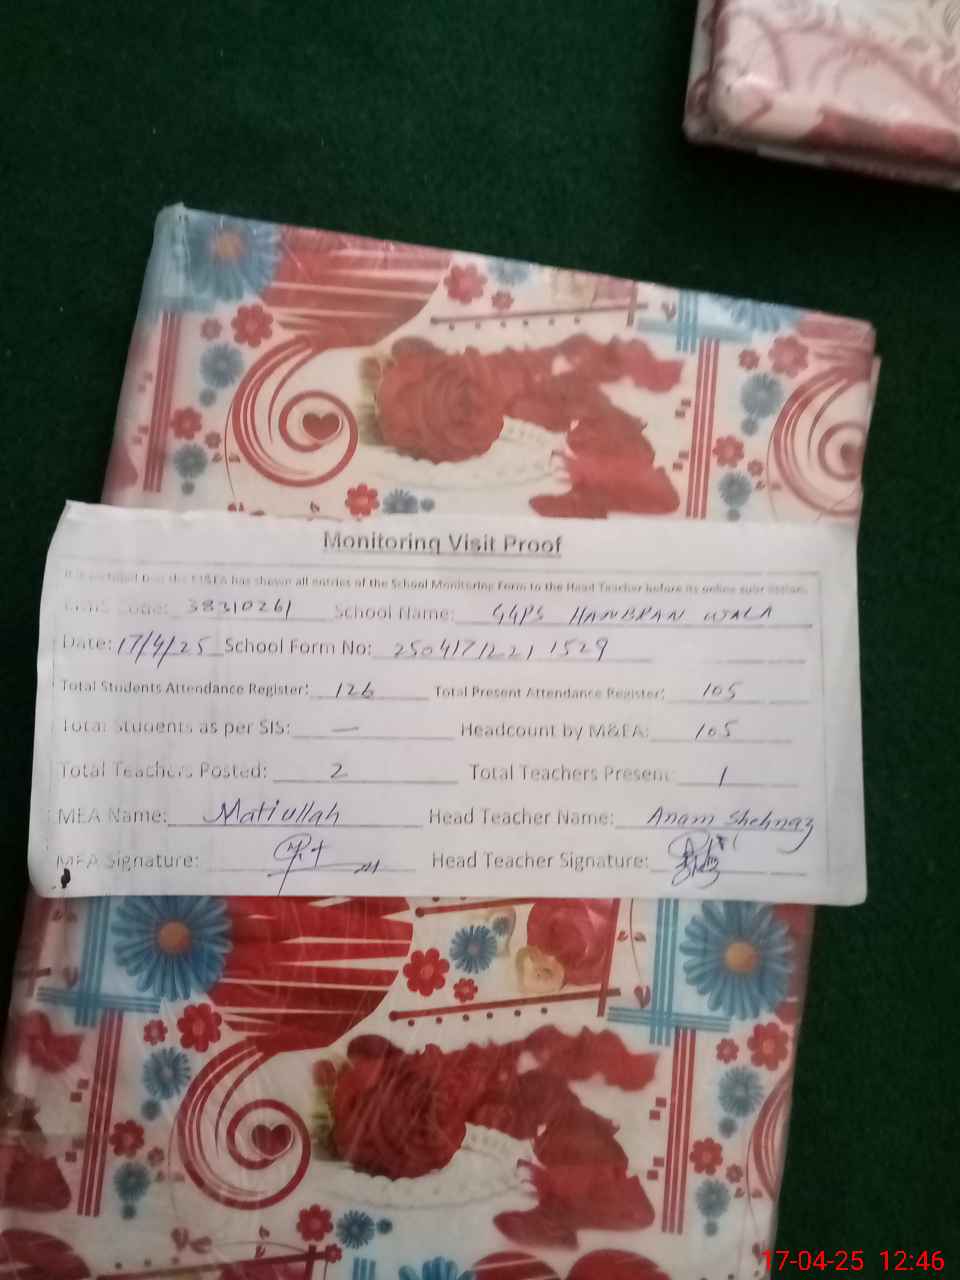 Monitoring Visit Proof
has shown all entries of the School Monitoring Form to the Head Teacher before its online submission.
Code: 38310261 School Name: GGPS HAMBRAN WALA
Date: 17/4/25 School Form No: 25041712211529
Total Students Attendance Register: 126 Total Present Attendance Register: 105
Total Students as per SIS: — Headcount by M&EA: 105
Total Teachers Posted: 2 Total Teachers Present: 1
MEA Name: Matiullah Head Teacher Name: Anam Shehnaz
MEA Signature: Head Teacher Signature:
17-04-25 12:46